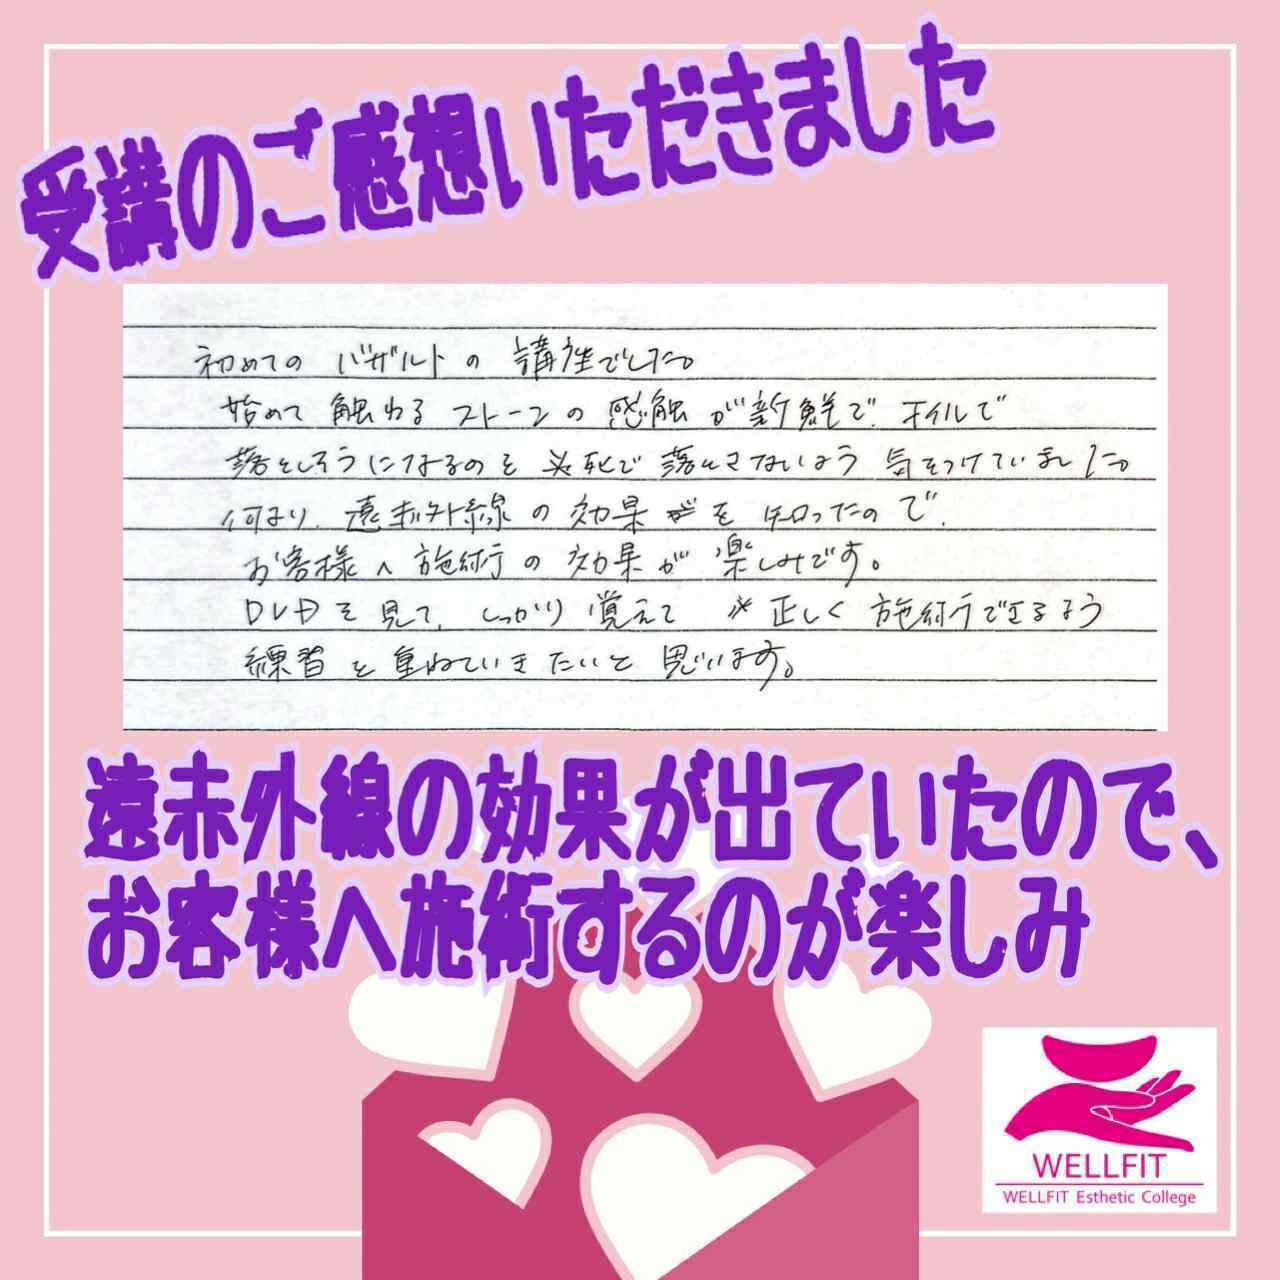 受講のご感想いただきました
初めてのバザルトの講座でした。
始めて触れるストーンの感触が新鮮で、オイルで
落としそうになるのを必死で落とさないよう気をつけていました。
何より、遠赤外線の効果を知ったので、
お客様へ施術の効果が楽しみです。
DVDを見て、しっかり覚えて正しく施術できるよう
練習を重ねていきたいと思います。
遠赤外線の効果が出ていたので、
お客様へ施術するのが楽しみ
WELLFIT
WELLFIT Esthetic College